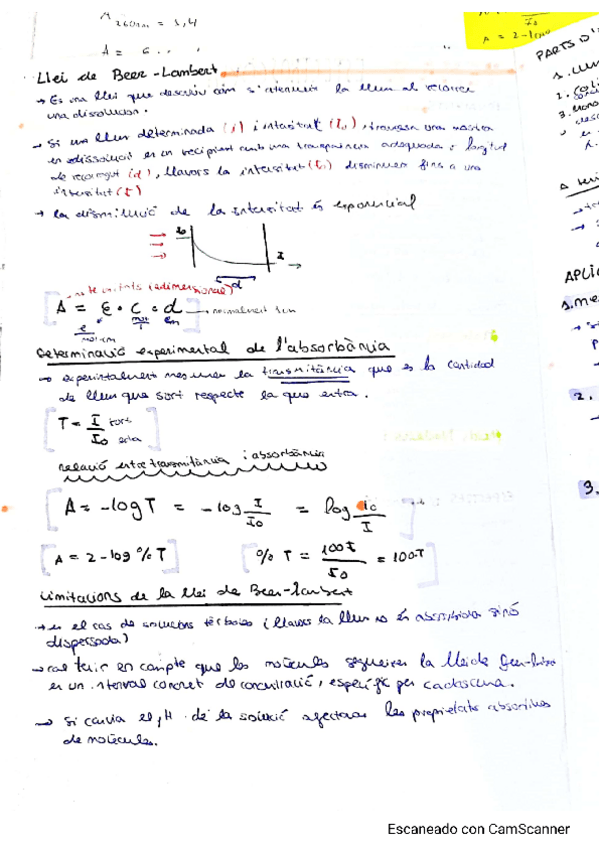 A 260nm = 3,4
A =
A = 2 - log
Llei de Beer-Lambert
→ Es una llei que descriu com s'atenueix la llum al
una dissolucion.
→ Si una llum determinada (i) i intensitat (I₀), travessa una mostra
en dissolució en un recipient amb una transparència adequada i longitud
de recorregut (d), llavors la intensitat (I₀) disminueix fins a una
intensitat (I)
→ la disminució de la intensitat és exponencial
I₀
I
d
(adimensional)
A = ε · c · d → normalment 1cm
mol
l
cm
Determinació experimental de l'absorbància
→ experimentalment mesurem la transmitància que es la cantidad
de llum que sort respecte la que entra.
T = I surt
I₀ entra
relació entre transmitància i absorbància
A = -log T = -log I/I₀ = log I₀/I
A = 2 - log % T
% T = 100I/I₀ = 100·T
Limitacions de la llei de Beer-Lambert
→ en el cas de solucions tèrboles (llavors la llum no és absorbida sinó
dispersada)
→ cal tenir en compte que les molècules segueixen la llei de Beer-
en un interval concret de concentració, específic per cadascuna.
→ Si canvia el pH de la solució afectaran les propietats
de molècules.
PARTS D'
1. Llum
APLI
2.
3.
Escaneado con CamScanner